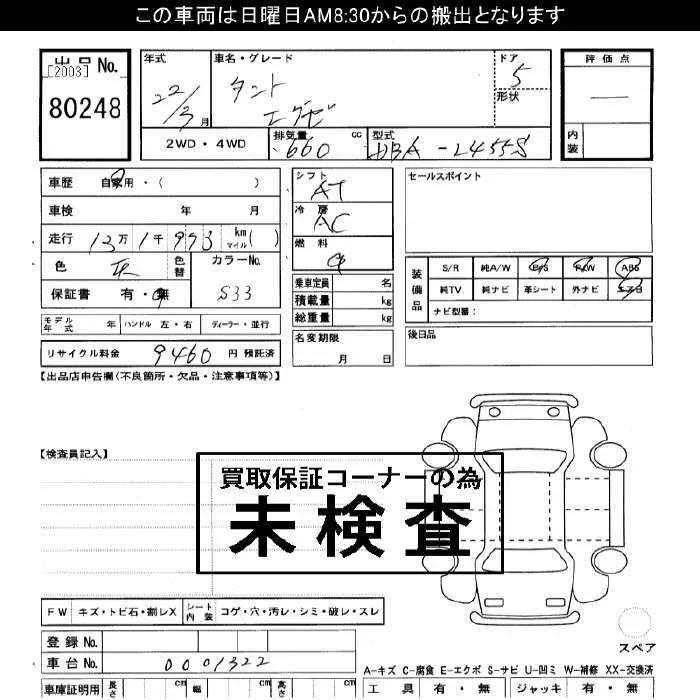 この車両は日曜日AM8:30からの搬出となります
出品No.
[2003]
80248
年式
22/3月
車名・グレード
タント
エグゼ
ドア
5
形状
評価点
—
内装
2WD・4WD
排気量 660 cc
型式 DBA-L455S
車歴 自家用・( )
車検 年 月
走行 13万1千973 km マイル( )
色 灰 色替 カラーNo. S33
保証書 有・無
モデル年式 年 ハンドル 左・右 ディーラー・並行
リサイクル料金 9460 円 預託済
シフト AT
冷房 AC
燃料
乗車定員 名
積載量 kg
総重量 kg
名変期限
月 日
セールスポイント
装備品
S/R 純A/W P/S P/W ABS
純TV 純ナビ 革シート 外ナビ エアB
ナビ型番:
後日品
【出品店申告欄(不良箇所・欠品・注意事項等)】
【検査員記入】
買取保証コーナーの為
未検査
FW キズ・トビ石・割レX シート内装 コゲ・穴・汚レ・シミ・破レ・スレ
登録No.
車台No. 0001322
スペア
A-キズ C-腐食 E-エクボ S-サビ U-凹ミ W-補修 XX-交換済
車庫証明用 長さ cm 幅 cm 高さ cm
工具 有・無 ジャッキ 有・無